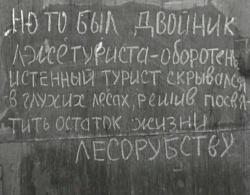 НО ТО БЫЛ ДВОЙНИК
ЛЖЕТУРИСТА-ОБОРОТЕНЬ
ИСТЕННЫЙ ТУРИСТ СКРЫВАЛСЯ
В ГЛУХИХ ЛЕСАХ, РЕШИВ ПОСВЯ
ТИТЬ ОСТАТОК ЖИЗНИ
ЛЕСОРУБСТВУ